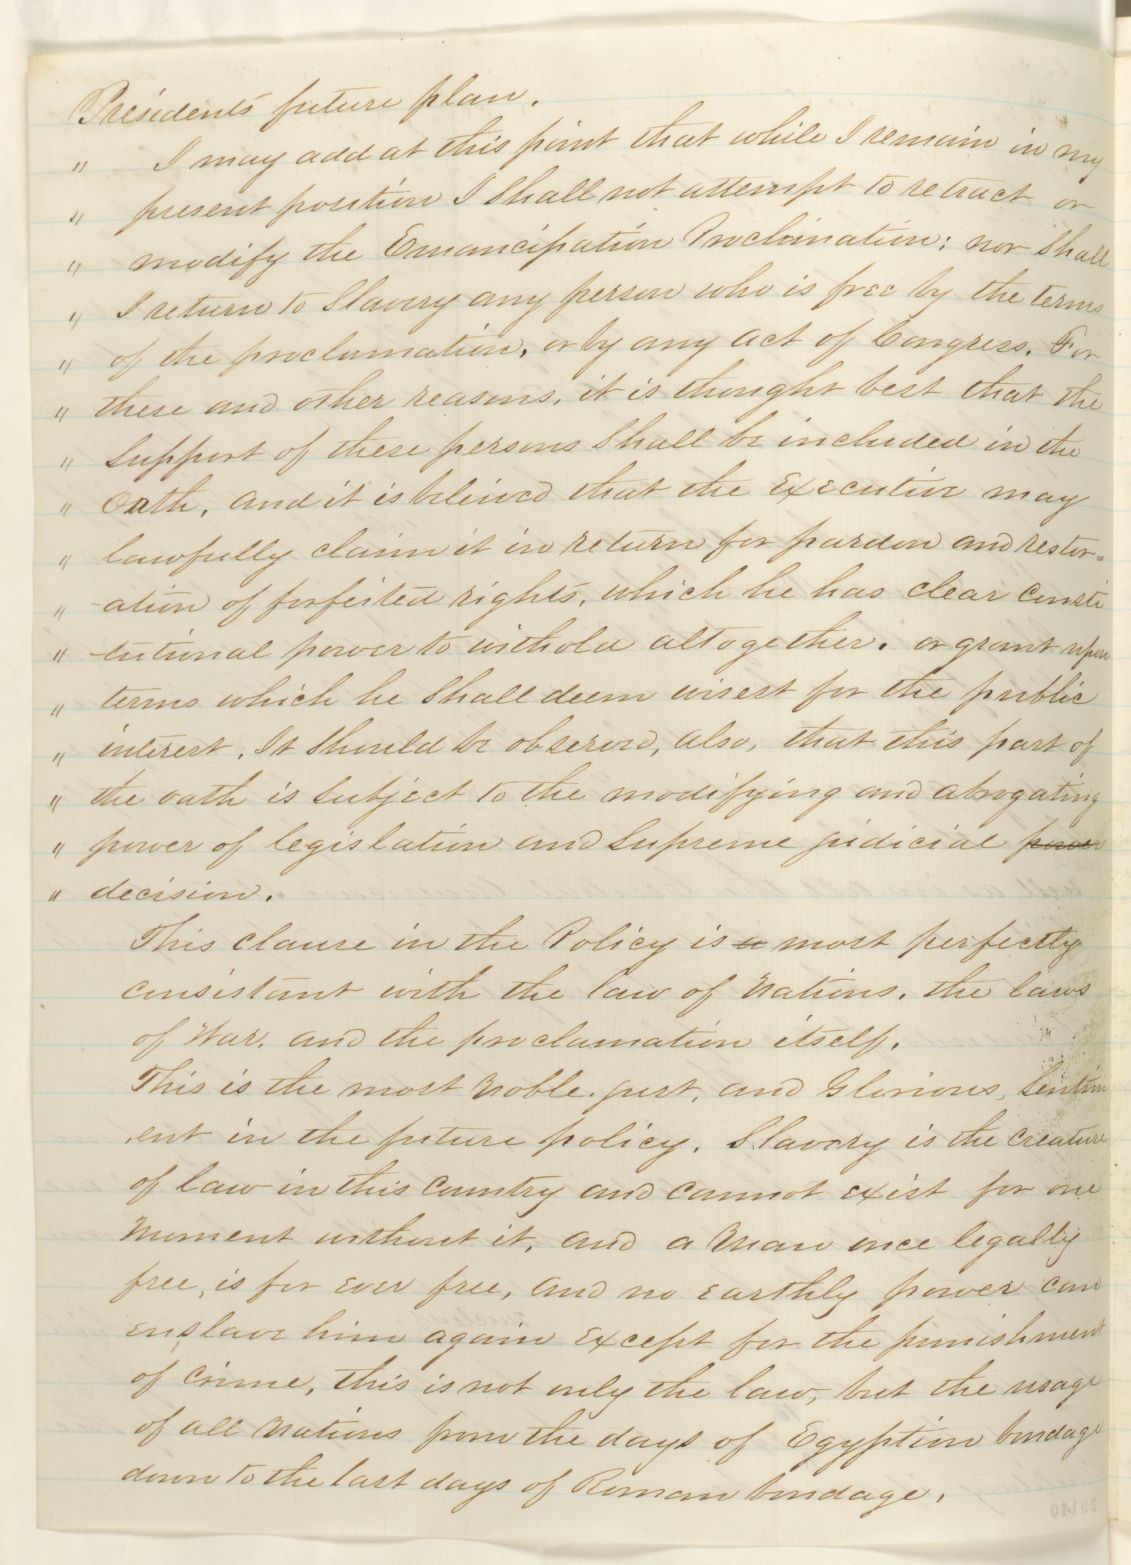 Presidents future plan.
" I may add at this point that while I remain in my
" present position I shall not attempt to retract or
" modify the Emancipation Proclamation; nor shall
" I return to Slavery any person who is free by the terms
" of the proclamation, or by any act of Congress. For
" these and other reasons, it is thought best that the
" support of these persons shall be included in the
" Oath, and it is believed that the Executive may
" lawfully claim it in return for pardon and restor-
" -ation of forfeited rights, which he has clear consti
" -tutional power to withold altogether. or grant upon
" terms which he shall deem wisest for the public
" interest. It should be observed, also, that this part of
" the oath is subject to the modifying and abrogating
" power of legislation and supreme judicial power
" decision.
This clause in the Policy is a most perfectly
consistant with the law of Nations. the laws
of War. and the proclamation itself.
This is the most Noble. just, and Glorious, Sentim
ent in the future policy. Slavery is the creature
of law in this Country and cannot exist for one
Moment without it, and a Man once legally
free, is for ever free, and no earthly power can
enslave him again except for the punishment
of crime, this is not only the law, but the usage
of all Nations from the days of Egyption bondage
down to the last days of Roman bondage.
29140